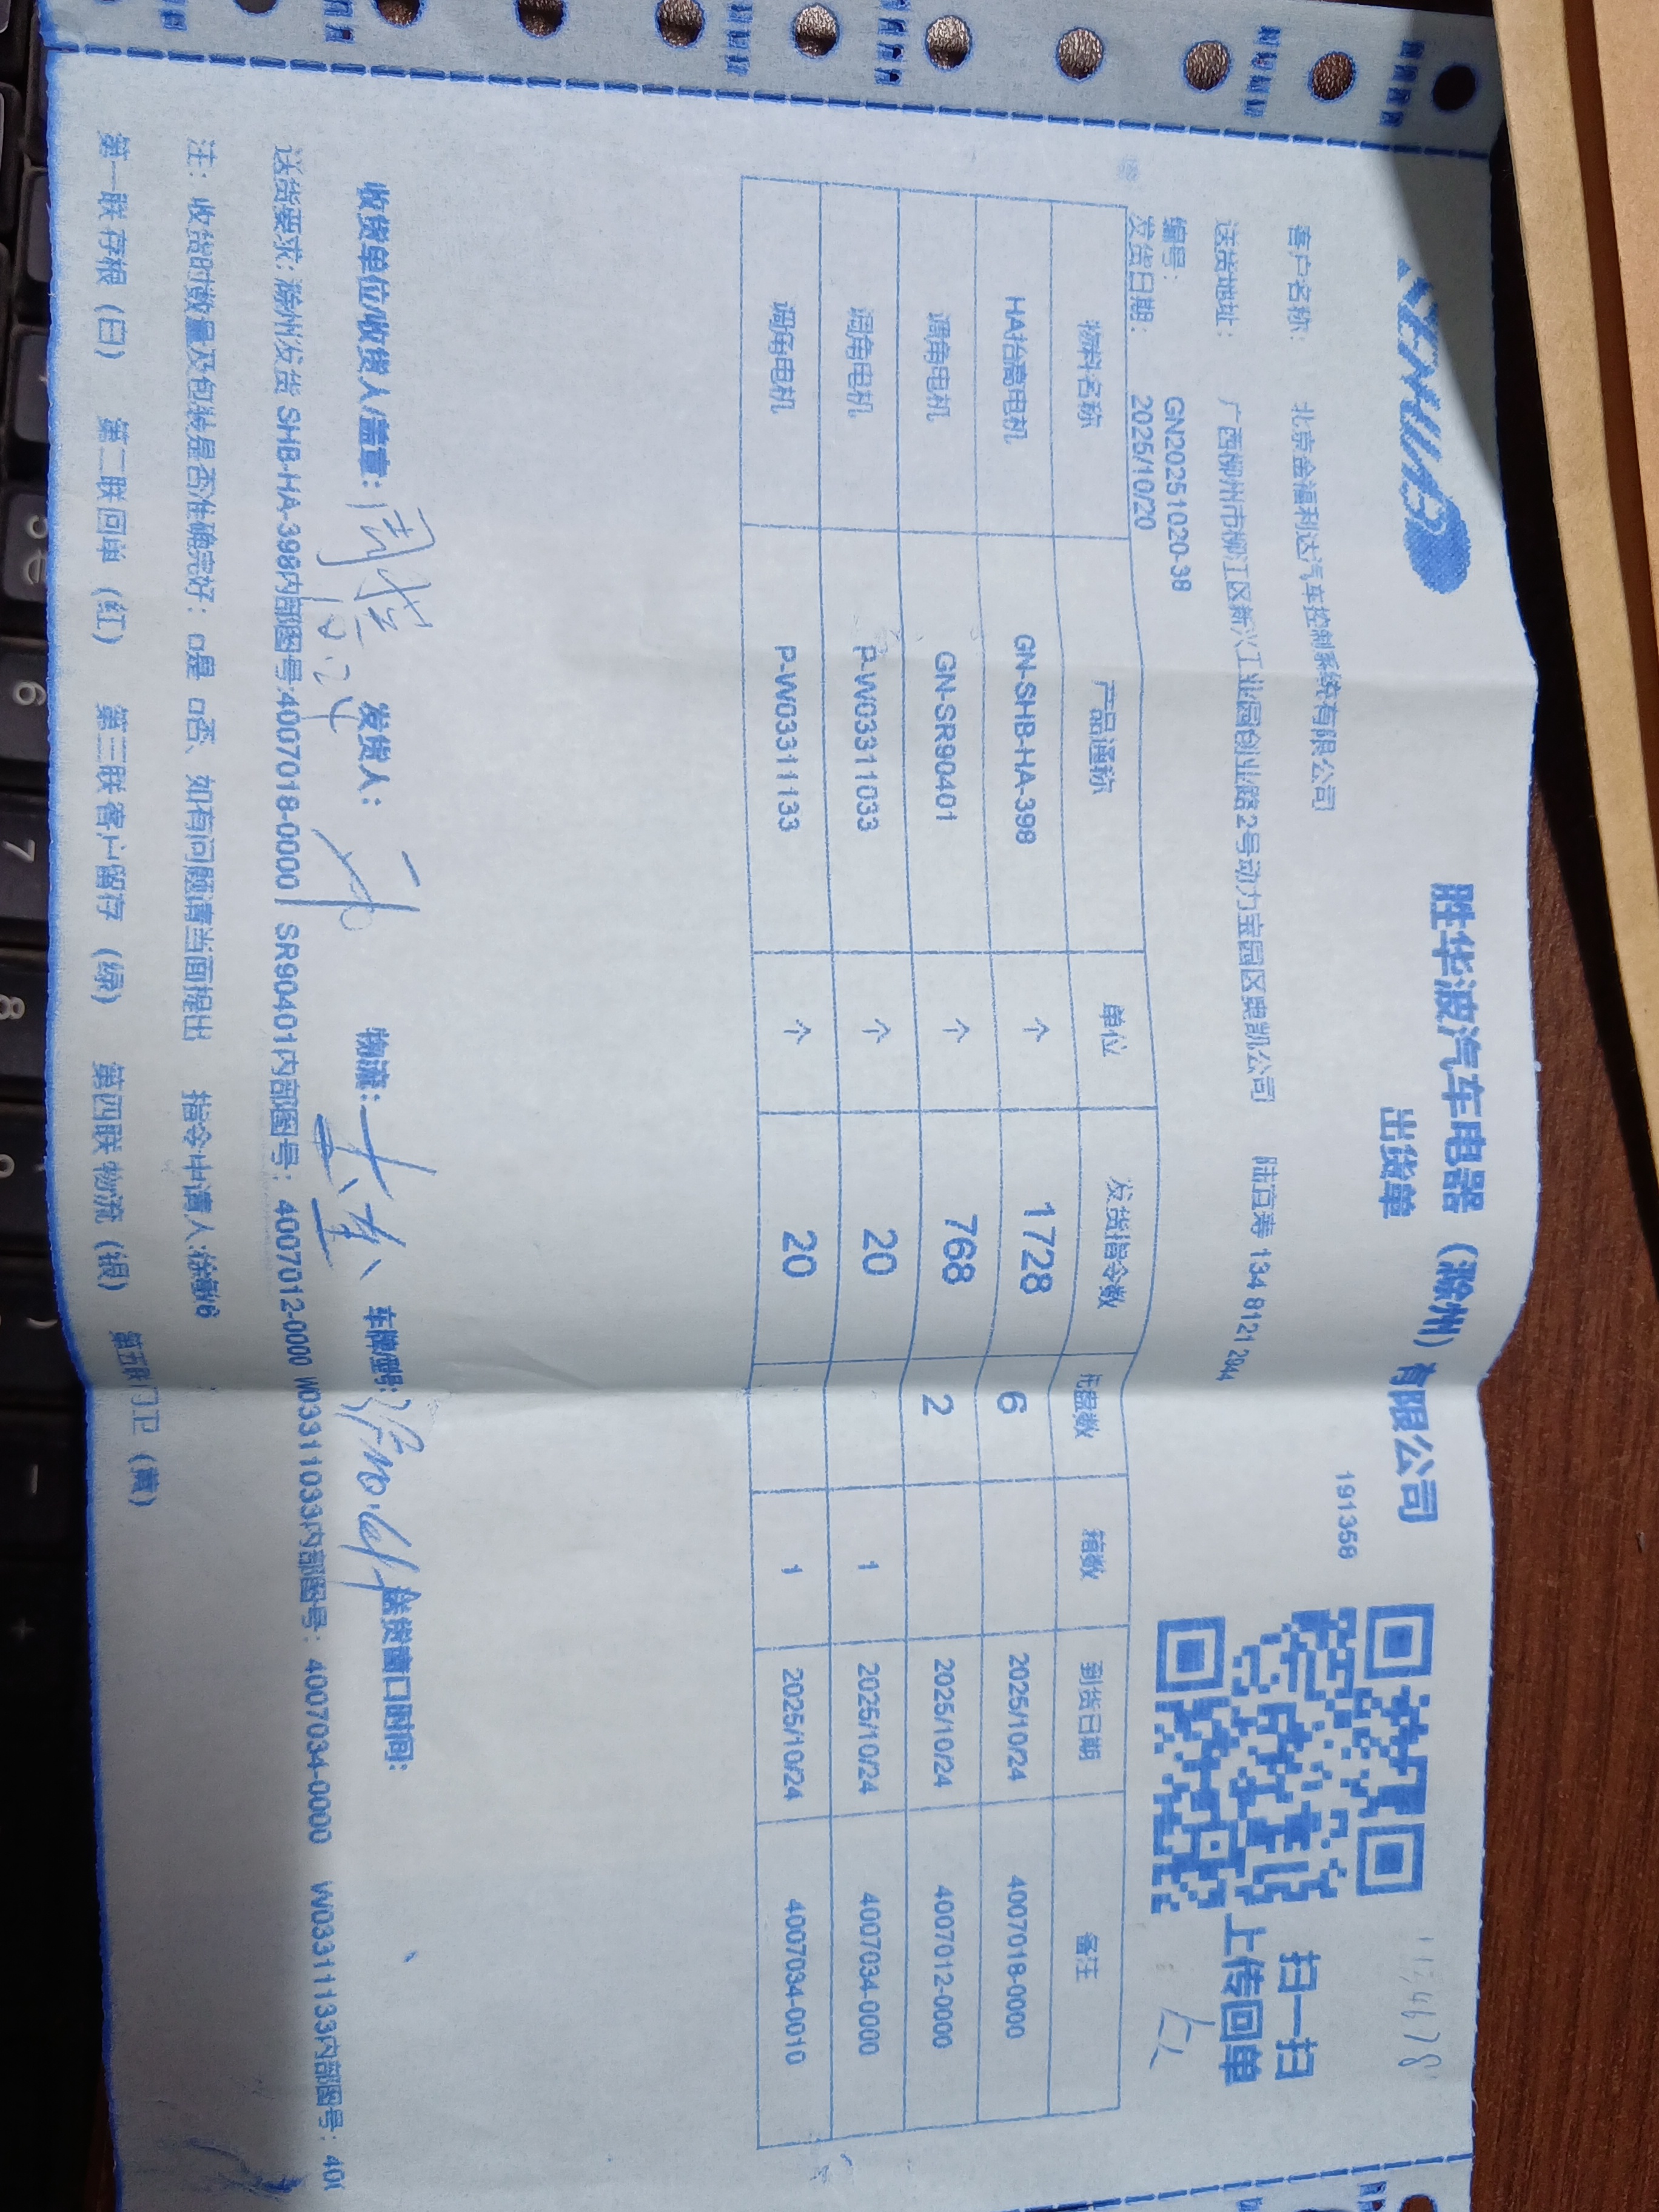 SHB
胜华波汽车电器（滁州）有限公司
出货单
191358
扫一扫
上传回单
客户名称： 北京金福利达汽车控制系统有限公司
送货地址： 广西柳州市柳江区新兴工业园创业路2号动力宝园区奥凯公司 陆宜寿 134 8121 2044
编号： GN20251020-38
发货日期： 2025/10/20
物料名称 产品通称 单位 发货指令数 托盘数 箱数 到货日期 备注
HA抬高电机 GN-SHB-HA-398 个 1728 6 2025/10/24 4007018-0000
调角电机 GN-SR90401 个 768 2 2025/10/24 4007012-0000
调角电机 P-W03311033 个 20 1 2025/10/24 4007034-0000
调角电机 P-W03311133 个 20 1 2025/10/24 4007034-0010
收货单位/收货人/盖章： 10.24 发货人： 物流： 车牌/型号： 送货窗口时间：
送货要求：滁州发货 SHB-HA-398内部图号:4007018-0000 SR90401内部图号：4007012-0000 W03311033内部图号：4007034-0000 W03311133内部图号：400
注： 收货时数量及包装是否准确完好： □是 □否、如有问题请当面提出 指令申请人:徐敏/6
第一联 存根（白） 第二联 回单（红） 第三联 客户留存（绿） 第四联 物流（银） 第五联 门卫（黄）